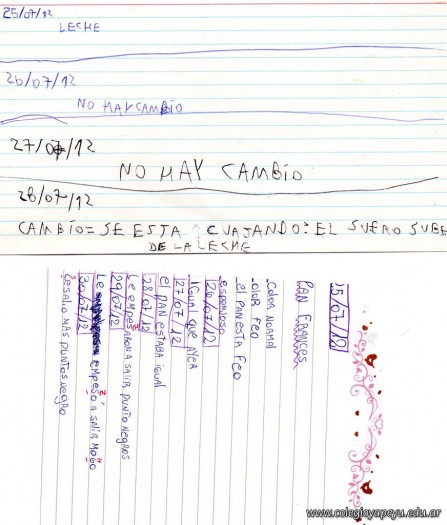 25/07/12
LECHE
26/07/12
NO HAY CAMBÍO
27/07/12
NO HAY CAMBÍO
28/07/12
CAMBÍO= SE ESTA CUAJANDO: EL SUERO SUBE
DE LA LECHE
25/07/12
PAN FRANCES
Color NORMAL
OlOR FEO
el PAN ESTA FEO
esponjoso
26/07/12
IGUAL QUE AYER
27/07/12
el PAN ESTABA IGUAL
28/07/12
Le EMPESARON A SALIR PUNTO NEGROS
29/07/12
Le EMPESÓ A SALIR MOHO
30/07/12
le SALIO MAS PUNTOS NEGRO
www.colegioyapeyu.edu.ar